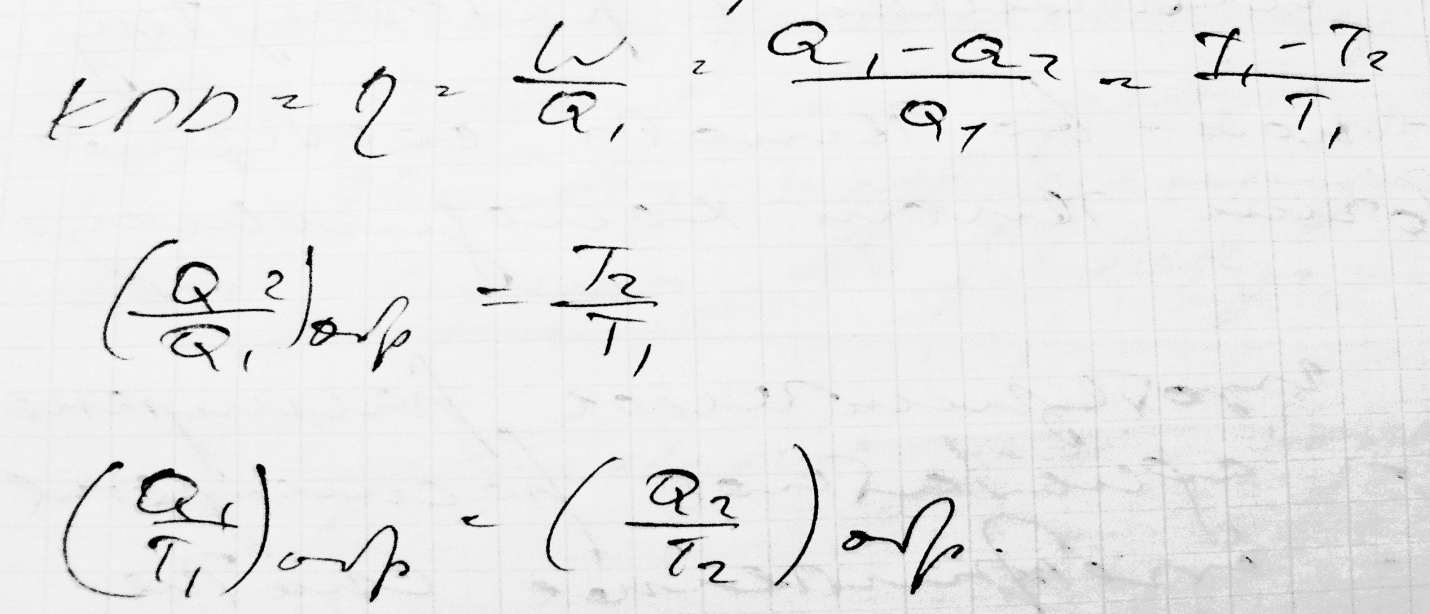 КПД = η = W/Q₁ = (Q₁ - Q₂)/Q₁ = (T₁ - T₂)/T₁
(Q₂/Q₁)обр = T₂/T₁
(Q₁/T₁)обр = (Q₂/T₂)обр.